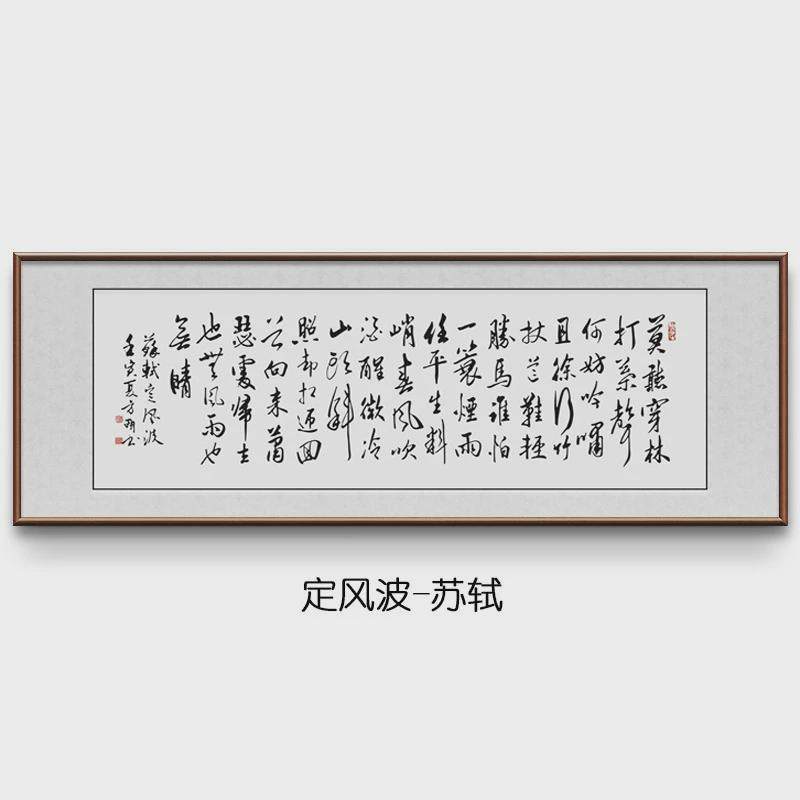 莫聽穿林
打葉聲
何妨吟嘯
且徐行竹
杖芒鞋輕
勝馬誰怕
一蓑煙雨
任平生料
峭春風吹
酒醒微冷
山頭斜
照却相迎回
首向來蕭
瑟處歸去
也無風雨也
無晴
蘇軾定風波
壬寅夏方
定风波-苏轼